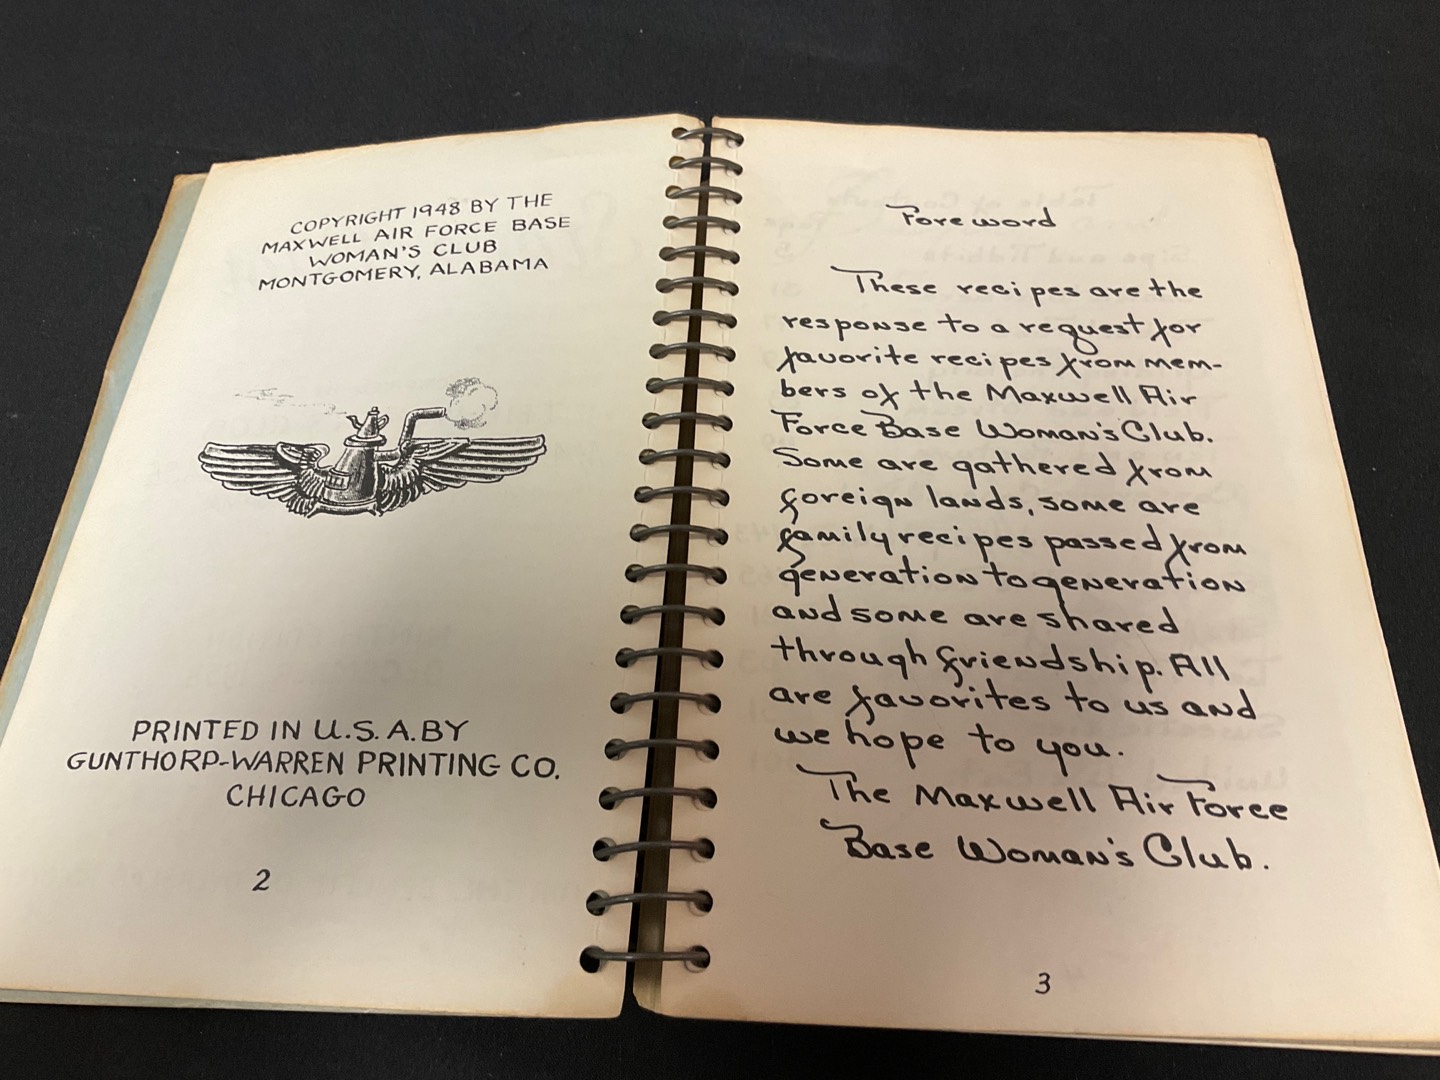 COPYRIGHT 1948 BY THE
MAXWELL AIR FORCE BASE
WOMAN'S CLUB
MONTGOMERY, ALABAMA
PRINTED IN U.S.A. BY
GUNTHORP-WARREN PRINTING CO.
CHICAGO
2
Foreword
These recipes are the
response to a request for
favorite recipes from mem-
bers of the Maxwell Air
Force Base Woman's Club.
Some are gathered from
foreign lands, some are
family recipes passed from
generation to generation
and some are shared
through friendship. All
are favorites to us and
we hope to you.
The Maxwell Air Force
Base Woman's Club.
3